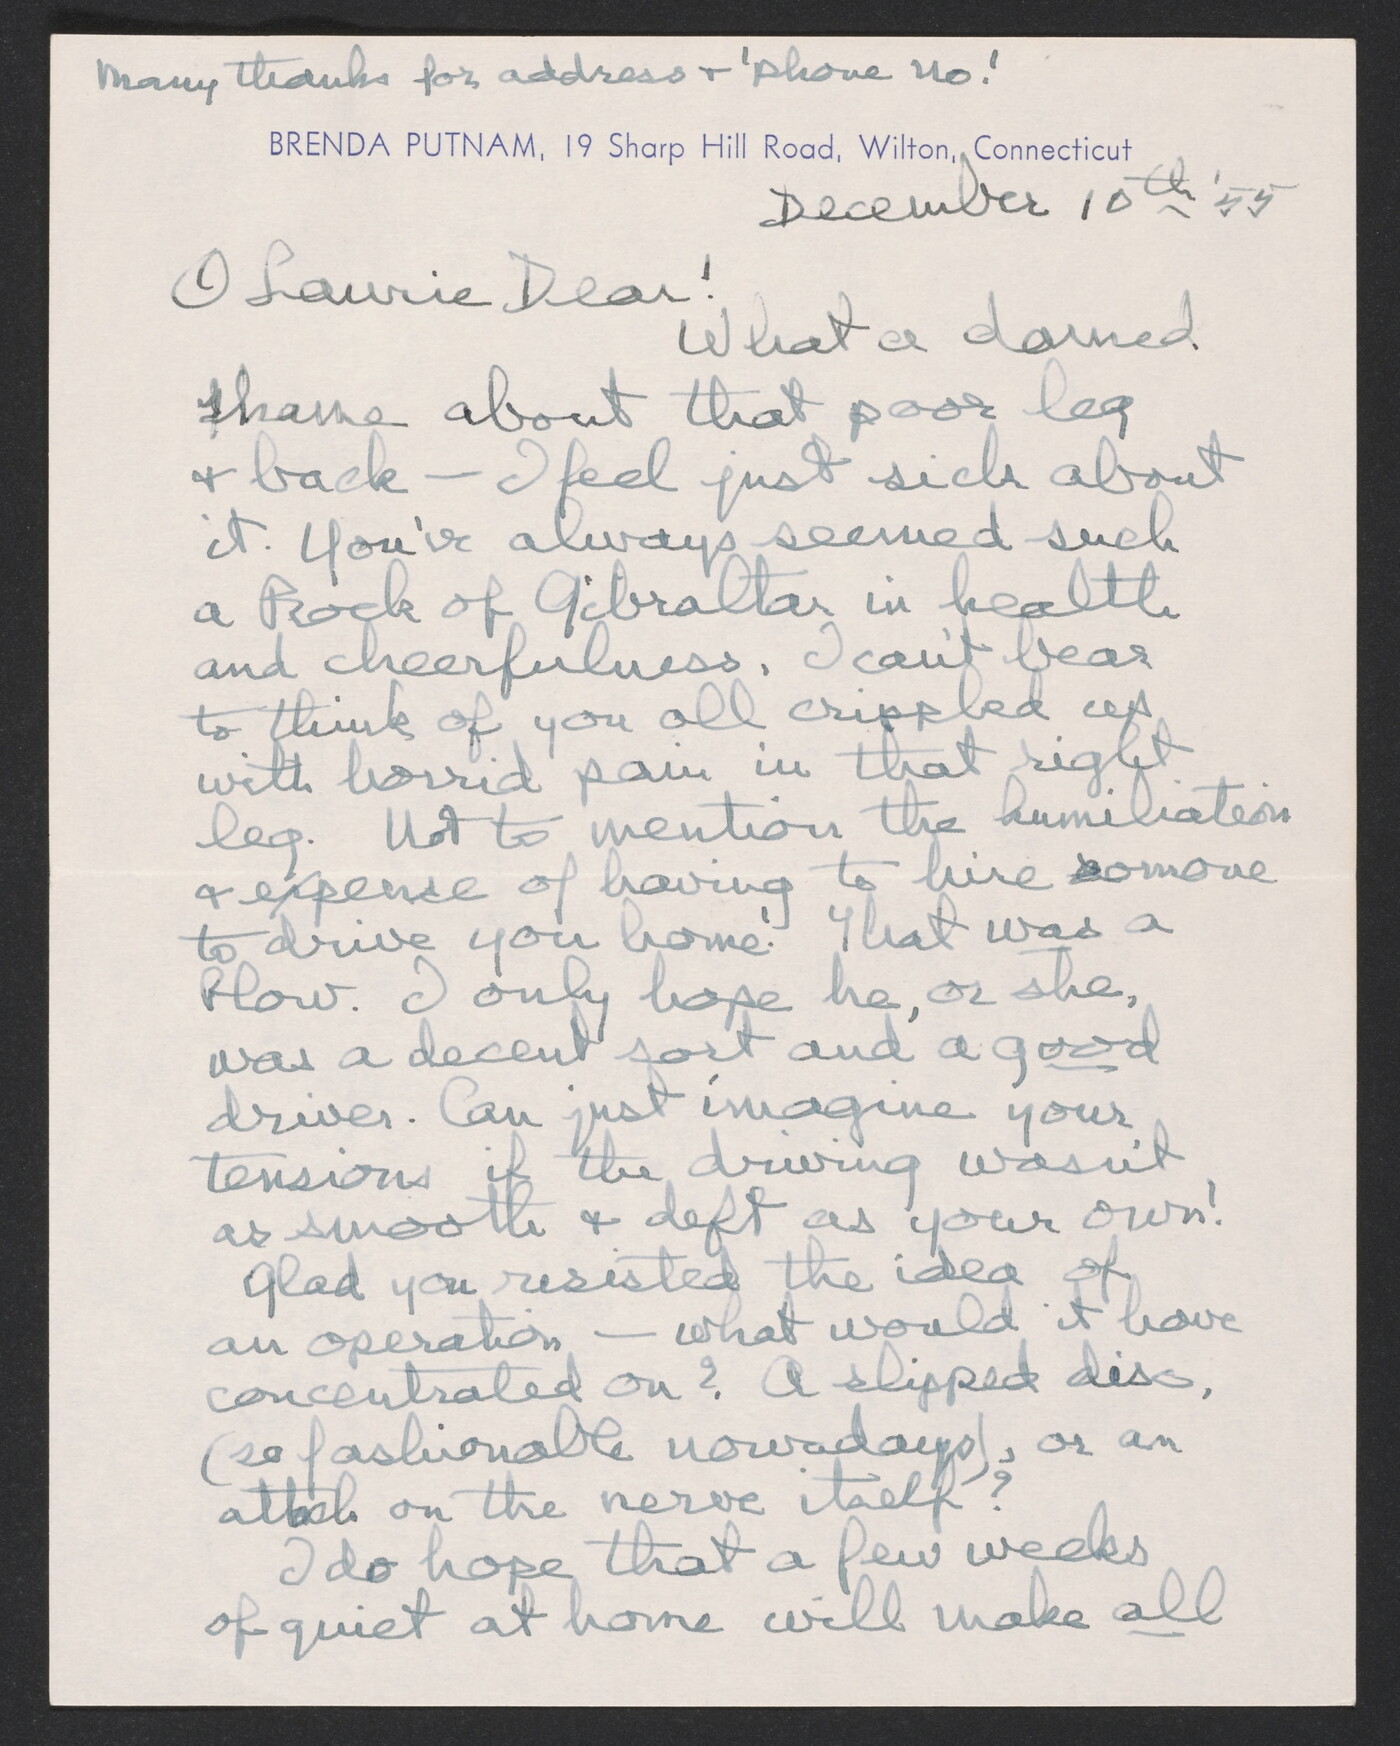 Many thanks for address + 'phone No!
BRENDA PUTNAM, 19 Sharp Hill Road, Wilton, Connecticut
December 10th '55
O Laurie Dear!
What a darned
shame about that poor leg
+ back — I feel just sick about
it. You've always seemed such
a Rock of Gibraltar in health
and cheerfulness. I can't bear
to think of you all crippled up
with horrid pain in that right
leg. Not to mention the humiliation
+ expense of having to hire somone
to drive you home! That was a
Blow. I only hope he, or she,
was a decent sort and a good
driver. Can just imagine your
tensions if the driving wasn't
as smooth + deft as your own!
Glad you resisted the idea of
an operation — what would it have
concentrated on? A slipped disc,
(so fashionable nowadays), or an
attack on the nerve itself?
I do hope that a few weeks
of quiet at home will make all